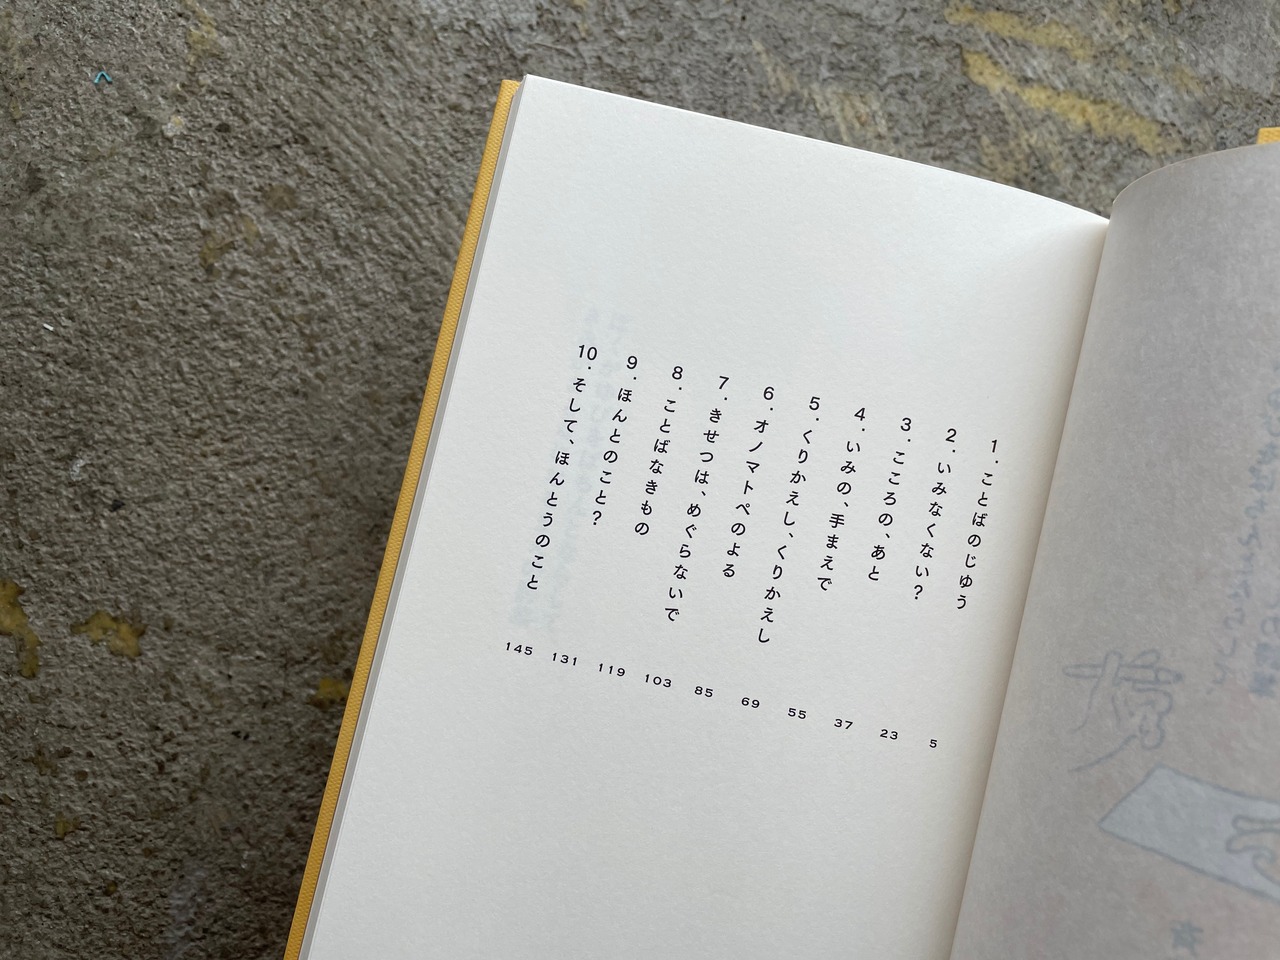 1. ことばのじゆう 5
2. いみなくない? 23
3. こころの、あと 37
4. いみの、手まえで 55
5. くりかえし、くりかえし 69
6. オノマトペのよる 85
7. きせつは、めぐらないで 103
8. ことばなきもの 119
9. ほんとのこと? 131
10. そして、ほんとうのこと 145